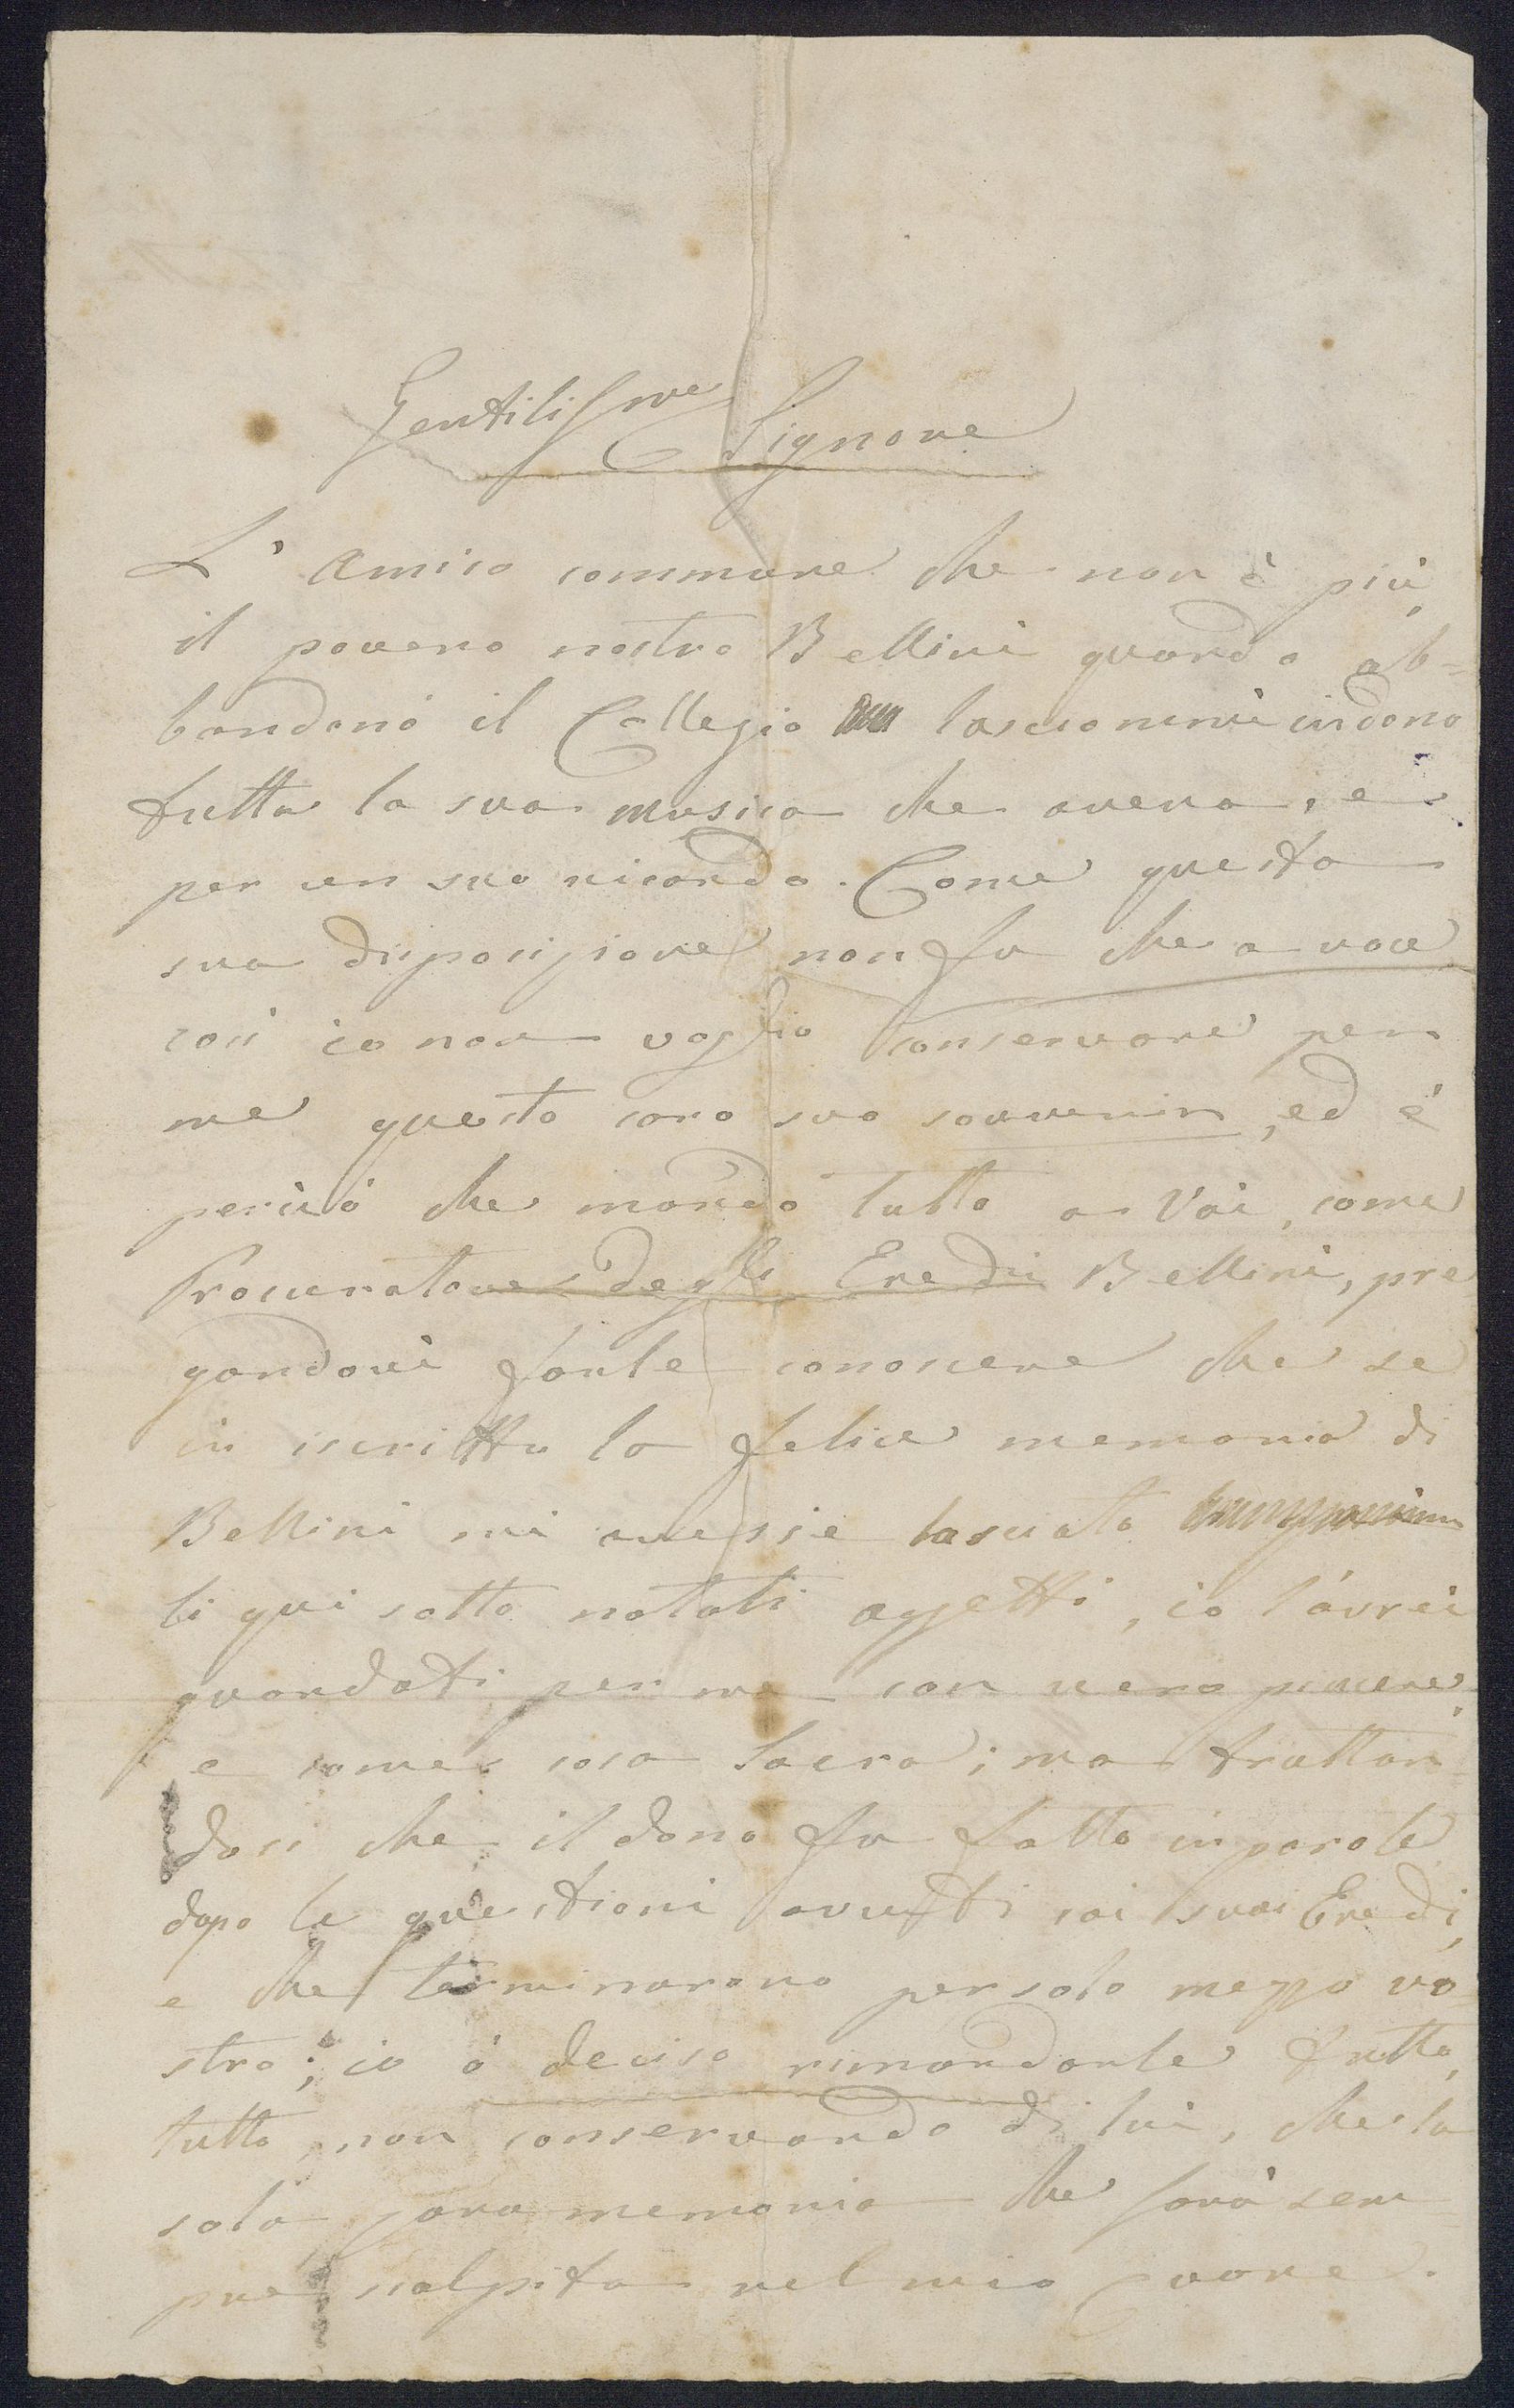 Gentilissme Signore
L' Amico commune che non è più,
il povero nostro Bellini quando ab=
bandonò il Collegio lasciommi in dono
tutta la sua musica che aveva, e
per un suo ricordo. Come questa
sua disposizione non fu che a voce
così io non voglio conservare per
me questo caro suo souvenir, ed è
perciò che mando tutto a Voi, come
Procuratore degli Eredi Bellini, pre
gandovi farle conoscere che se
in iscritto la felice memoria di
Bellini mi avesse lasciato
li qui sotto notati oggetti, io l'avrei
guardati per me con vero piacere,
e come cosa Sacra; ma trattan=
dosi che il dono fu fatto in parole
dopo le questioni avuti coi suoi Eredi,
e che terminarono per solo mezzo vo
stro; io ò deciso rimandarle tutto,
tutto, non conservando di lui, che la
sola cara memoria che sarà sem
pre scolpita nel mio cuore.